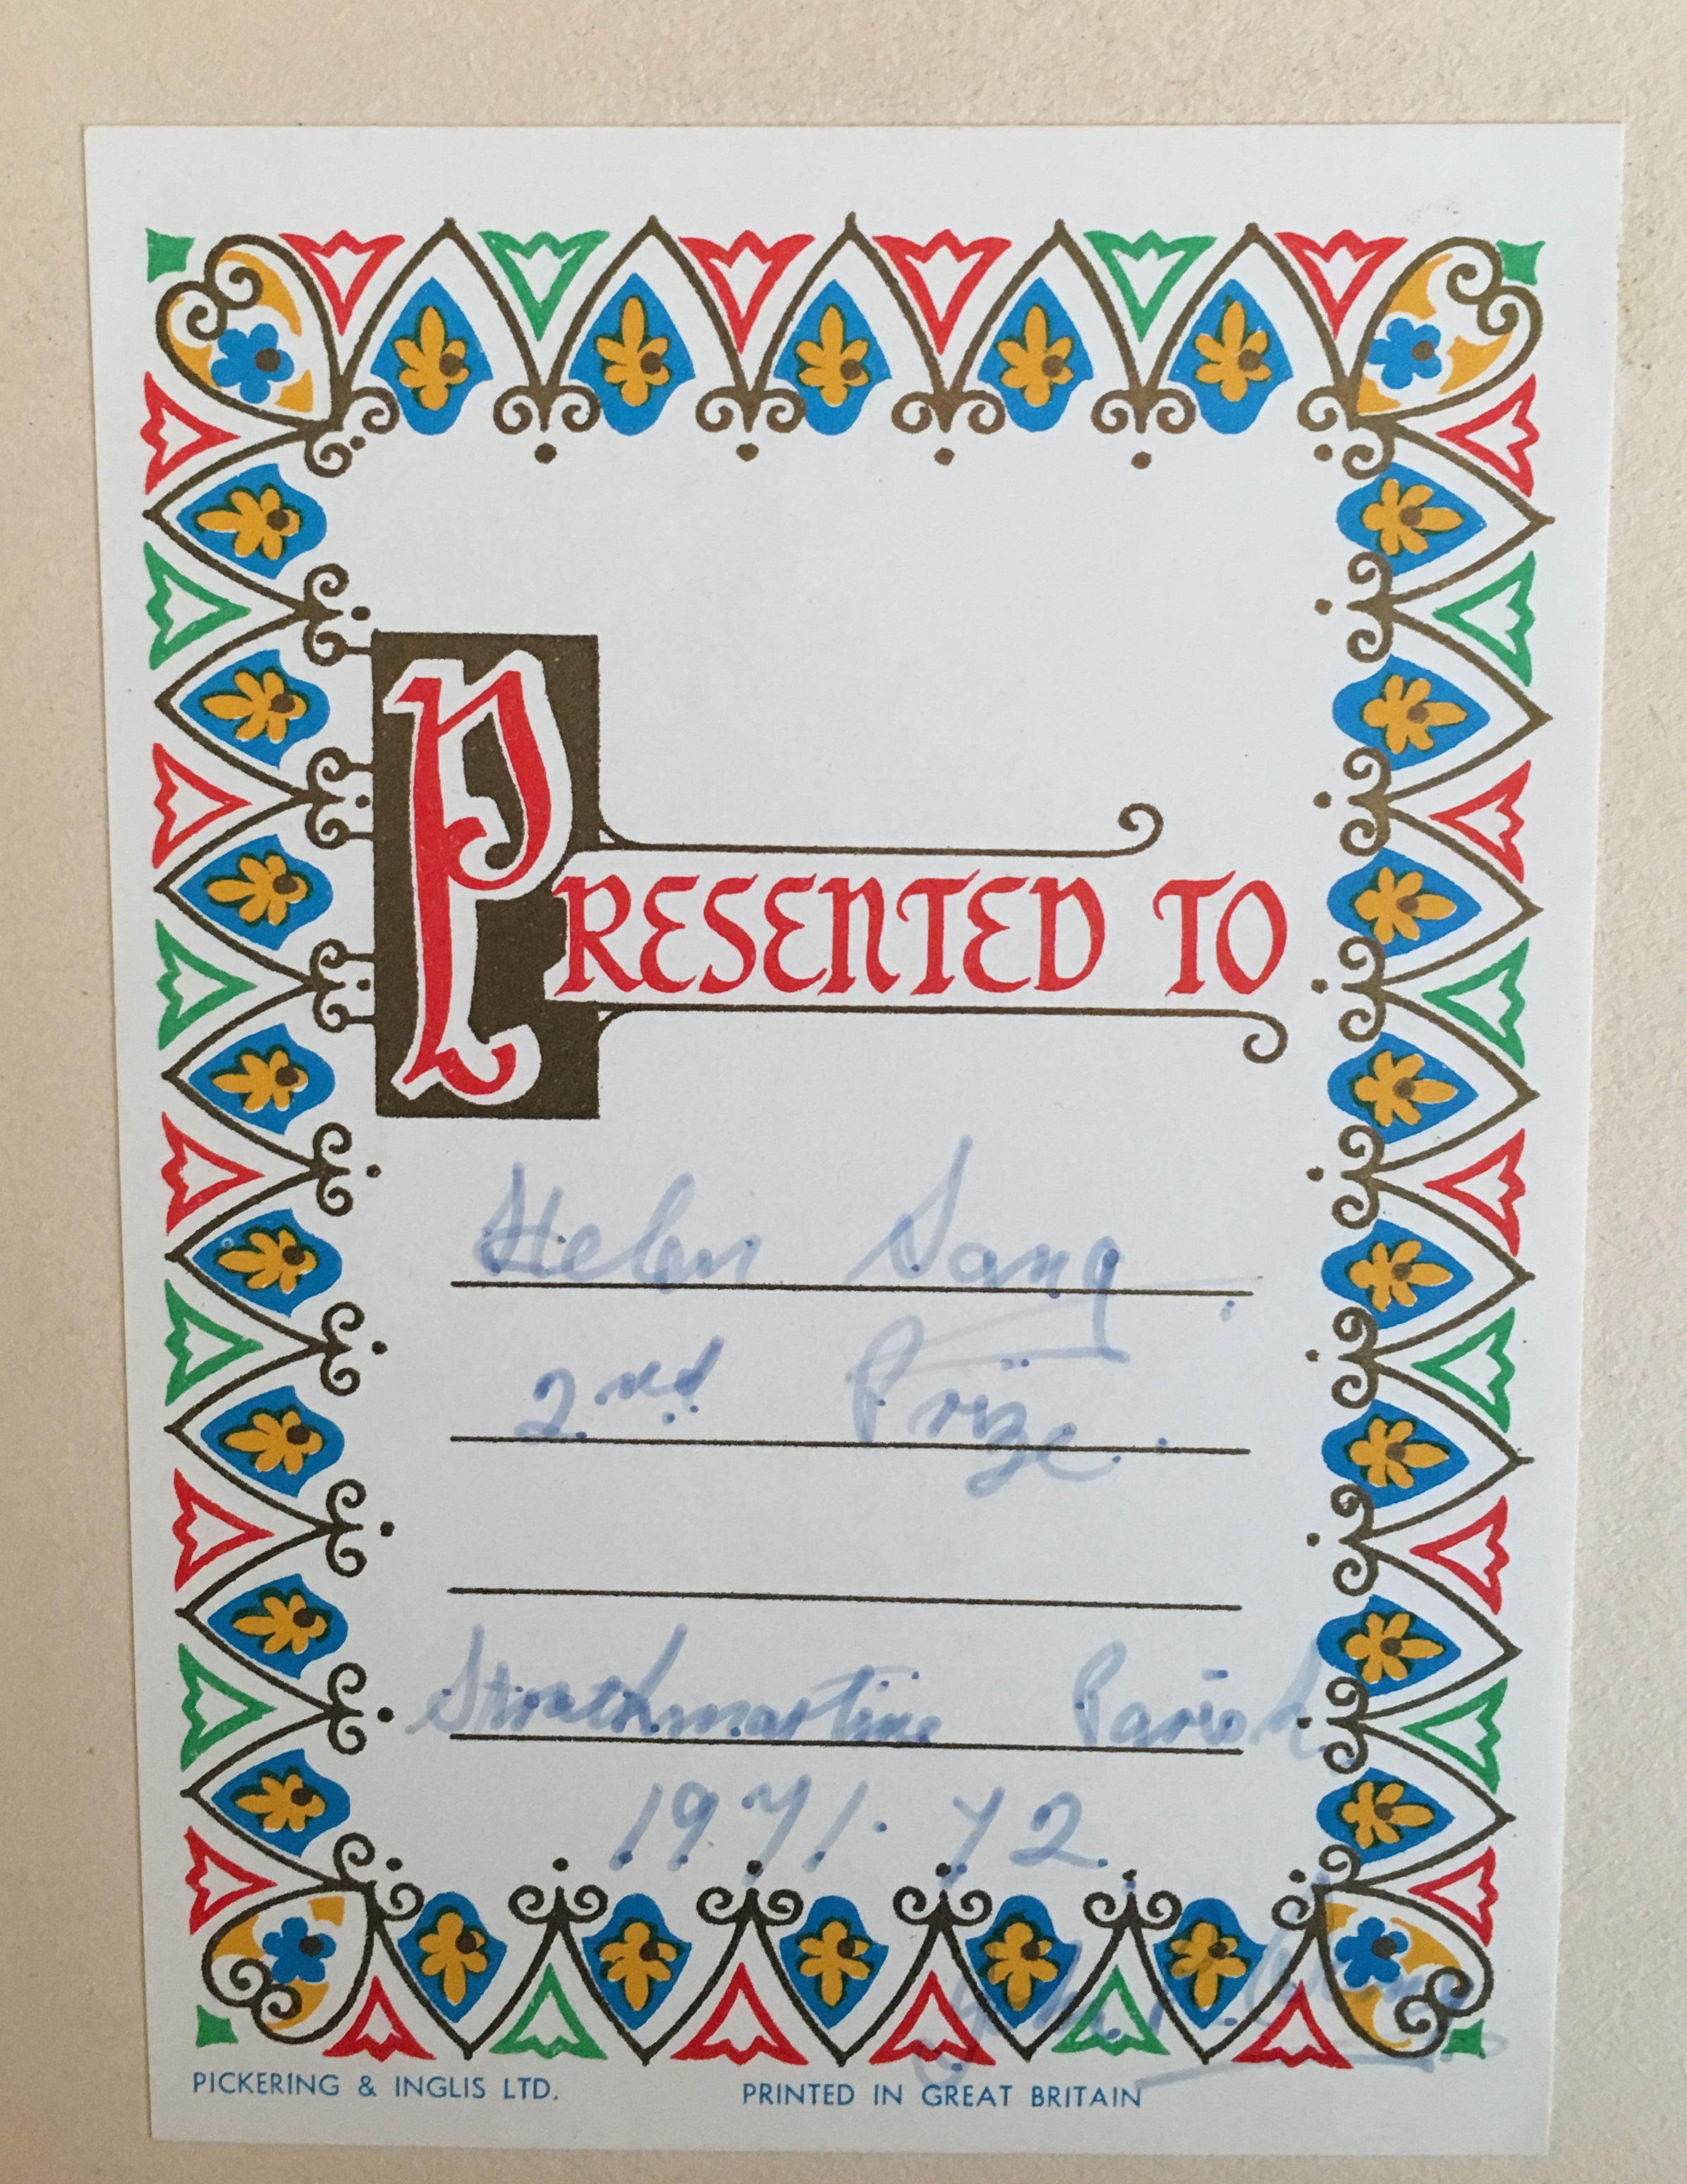 PRESENTED TO
Helen Sang
2nd Prize.
Strathmartine Parish
1971.72.
PICKERING & INGLIS LTD.
PRINTED IN GREAT BRITAIN